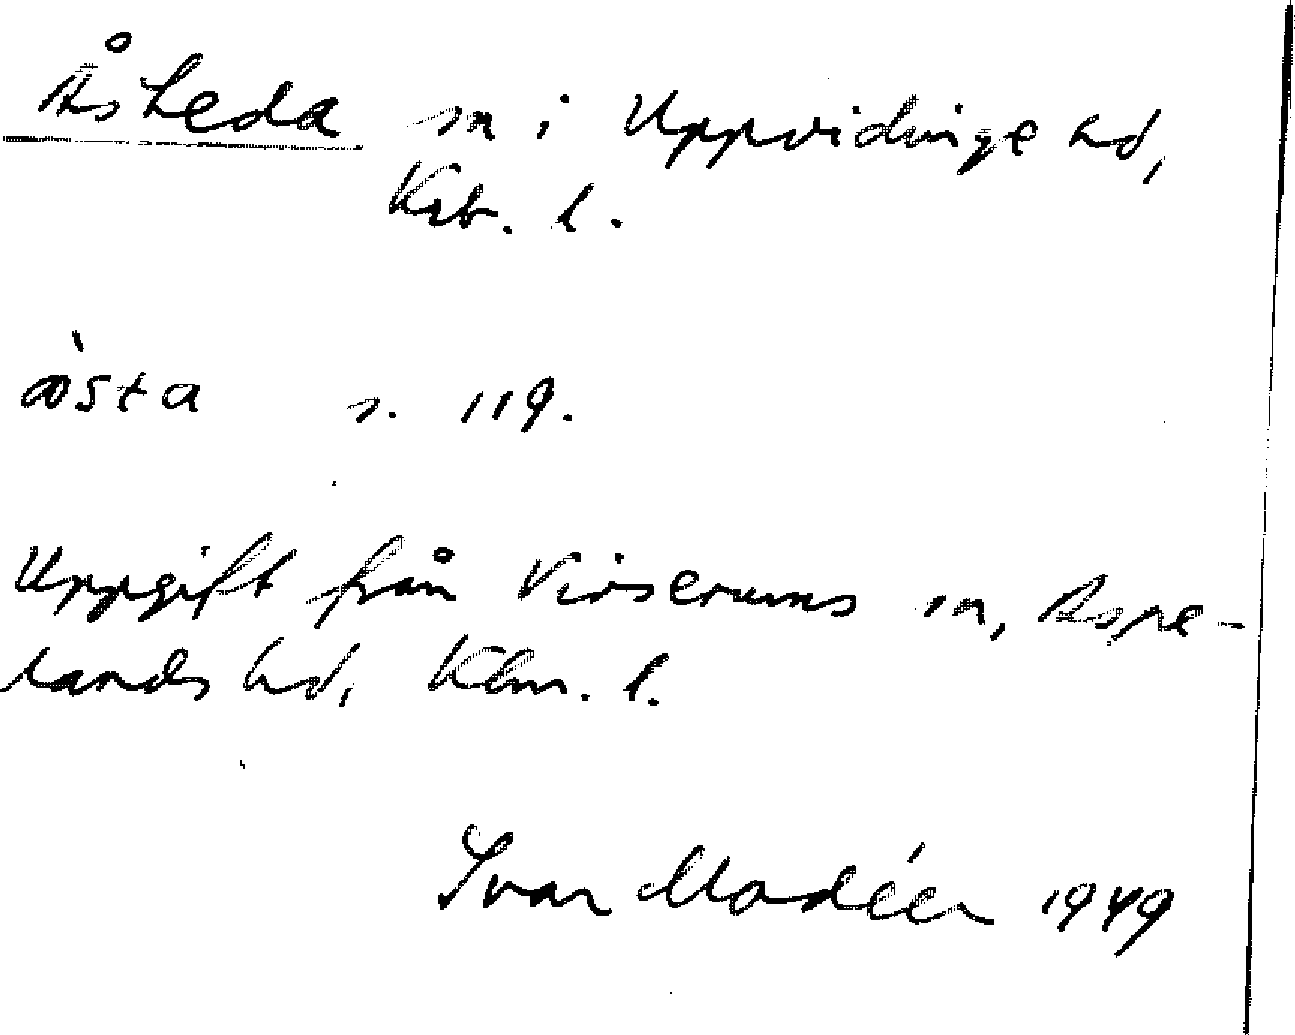 Åsheda sn i Uppvidinge hd,
Krb. l.
ò̀sta s. 119.
Uppgift från Virserums sn, Aspe-
lands hd, Klm. l.
Ivar Modéer 1949